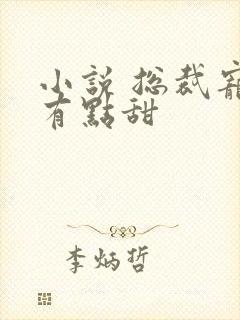 小說 总裁寵
有點甜
李炳哲